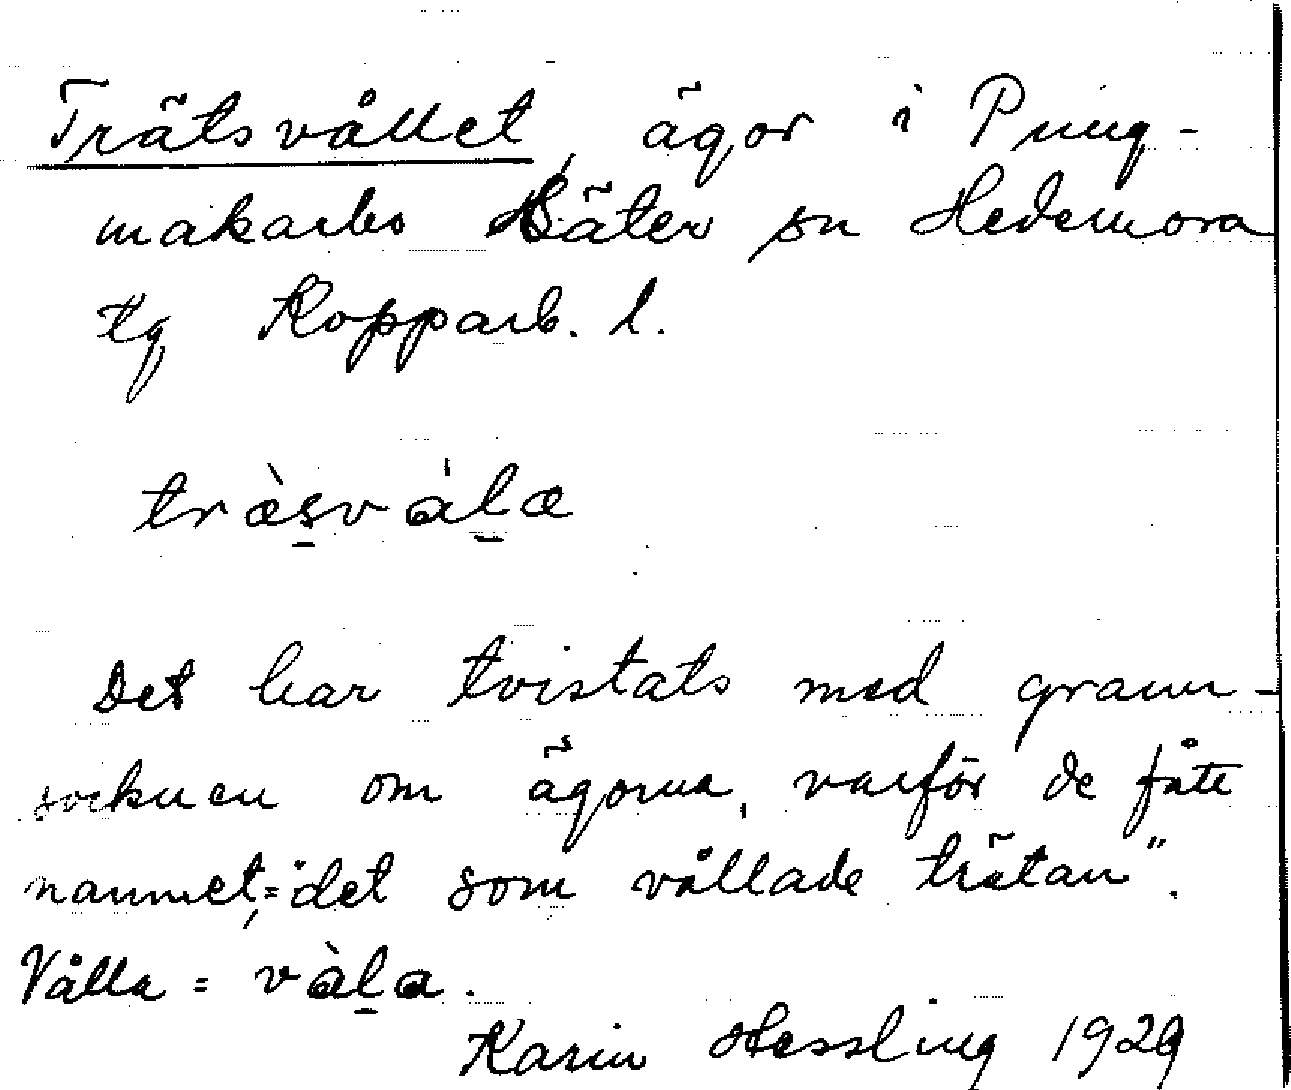 Trätsvållet, ägor i Pung-
makarbo Säter sn Hedemora
tg Kopparb. l.
træ̀svålæ
Det har tvistats med grann-
socknen om ägorna, varför de fått
namnet, = "det som vållade trätan".
Vålla = våla.
Karin Hessling 1929